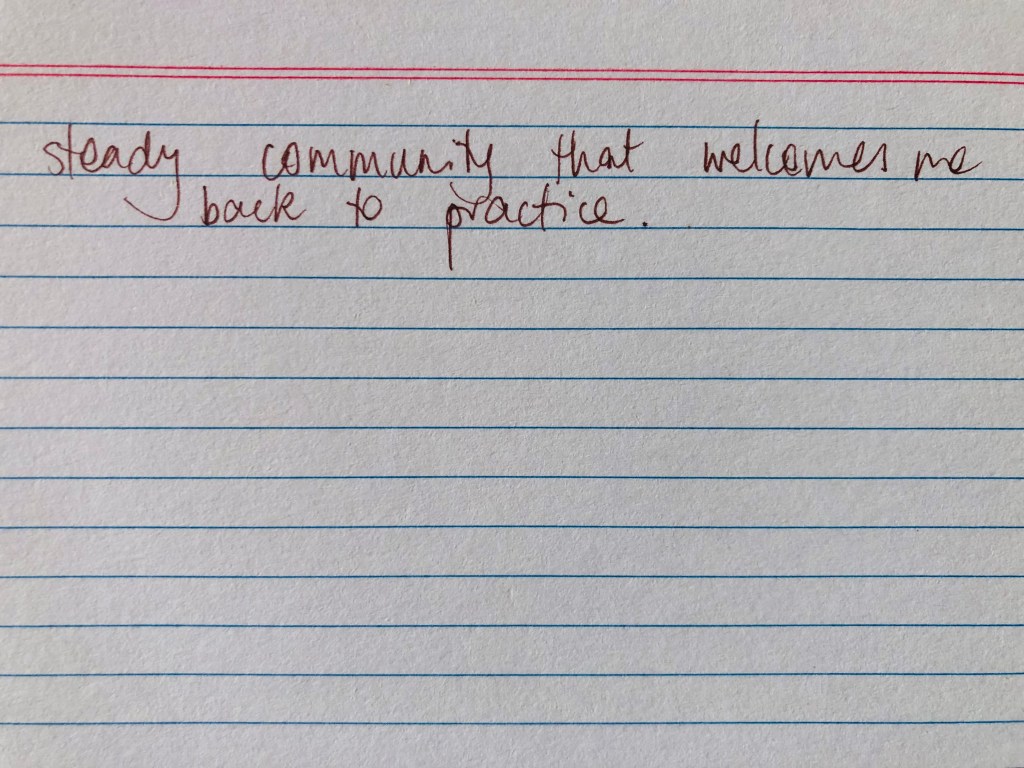 steady community that welcomes me
back to practice.